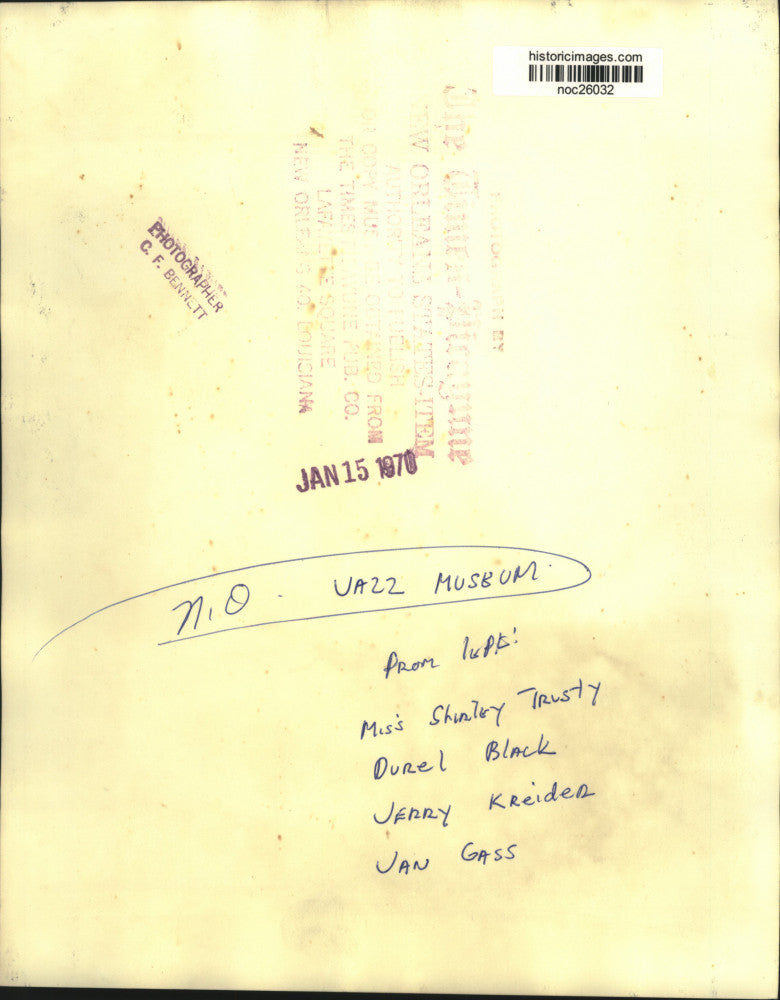 historicimages.com
noc26032
The Times-Picayune
NEW ORLEANS STATES-ITEM
AUTHORITY TO PUBLISH
COPY FROM
THE TIMES PUB. CO.
LAFAYETTE SQUARE
NEW ORLEANS 40, LOUISIANA
PHOTOGRAPHER
C. F. BENNETT
JAN 15 1970
N.O. JAZZ MUSEUM.
FROM
MISS SHIRLEY TRUSTY
DUREL BLACK
JERRY KREIDER
JAN GASS